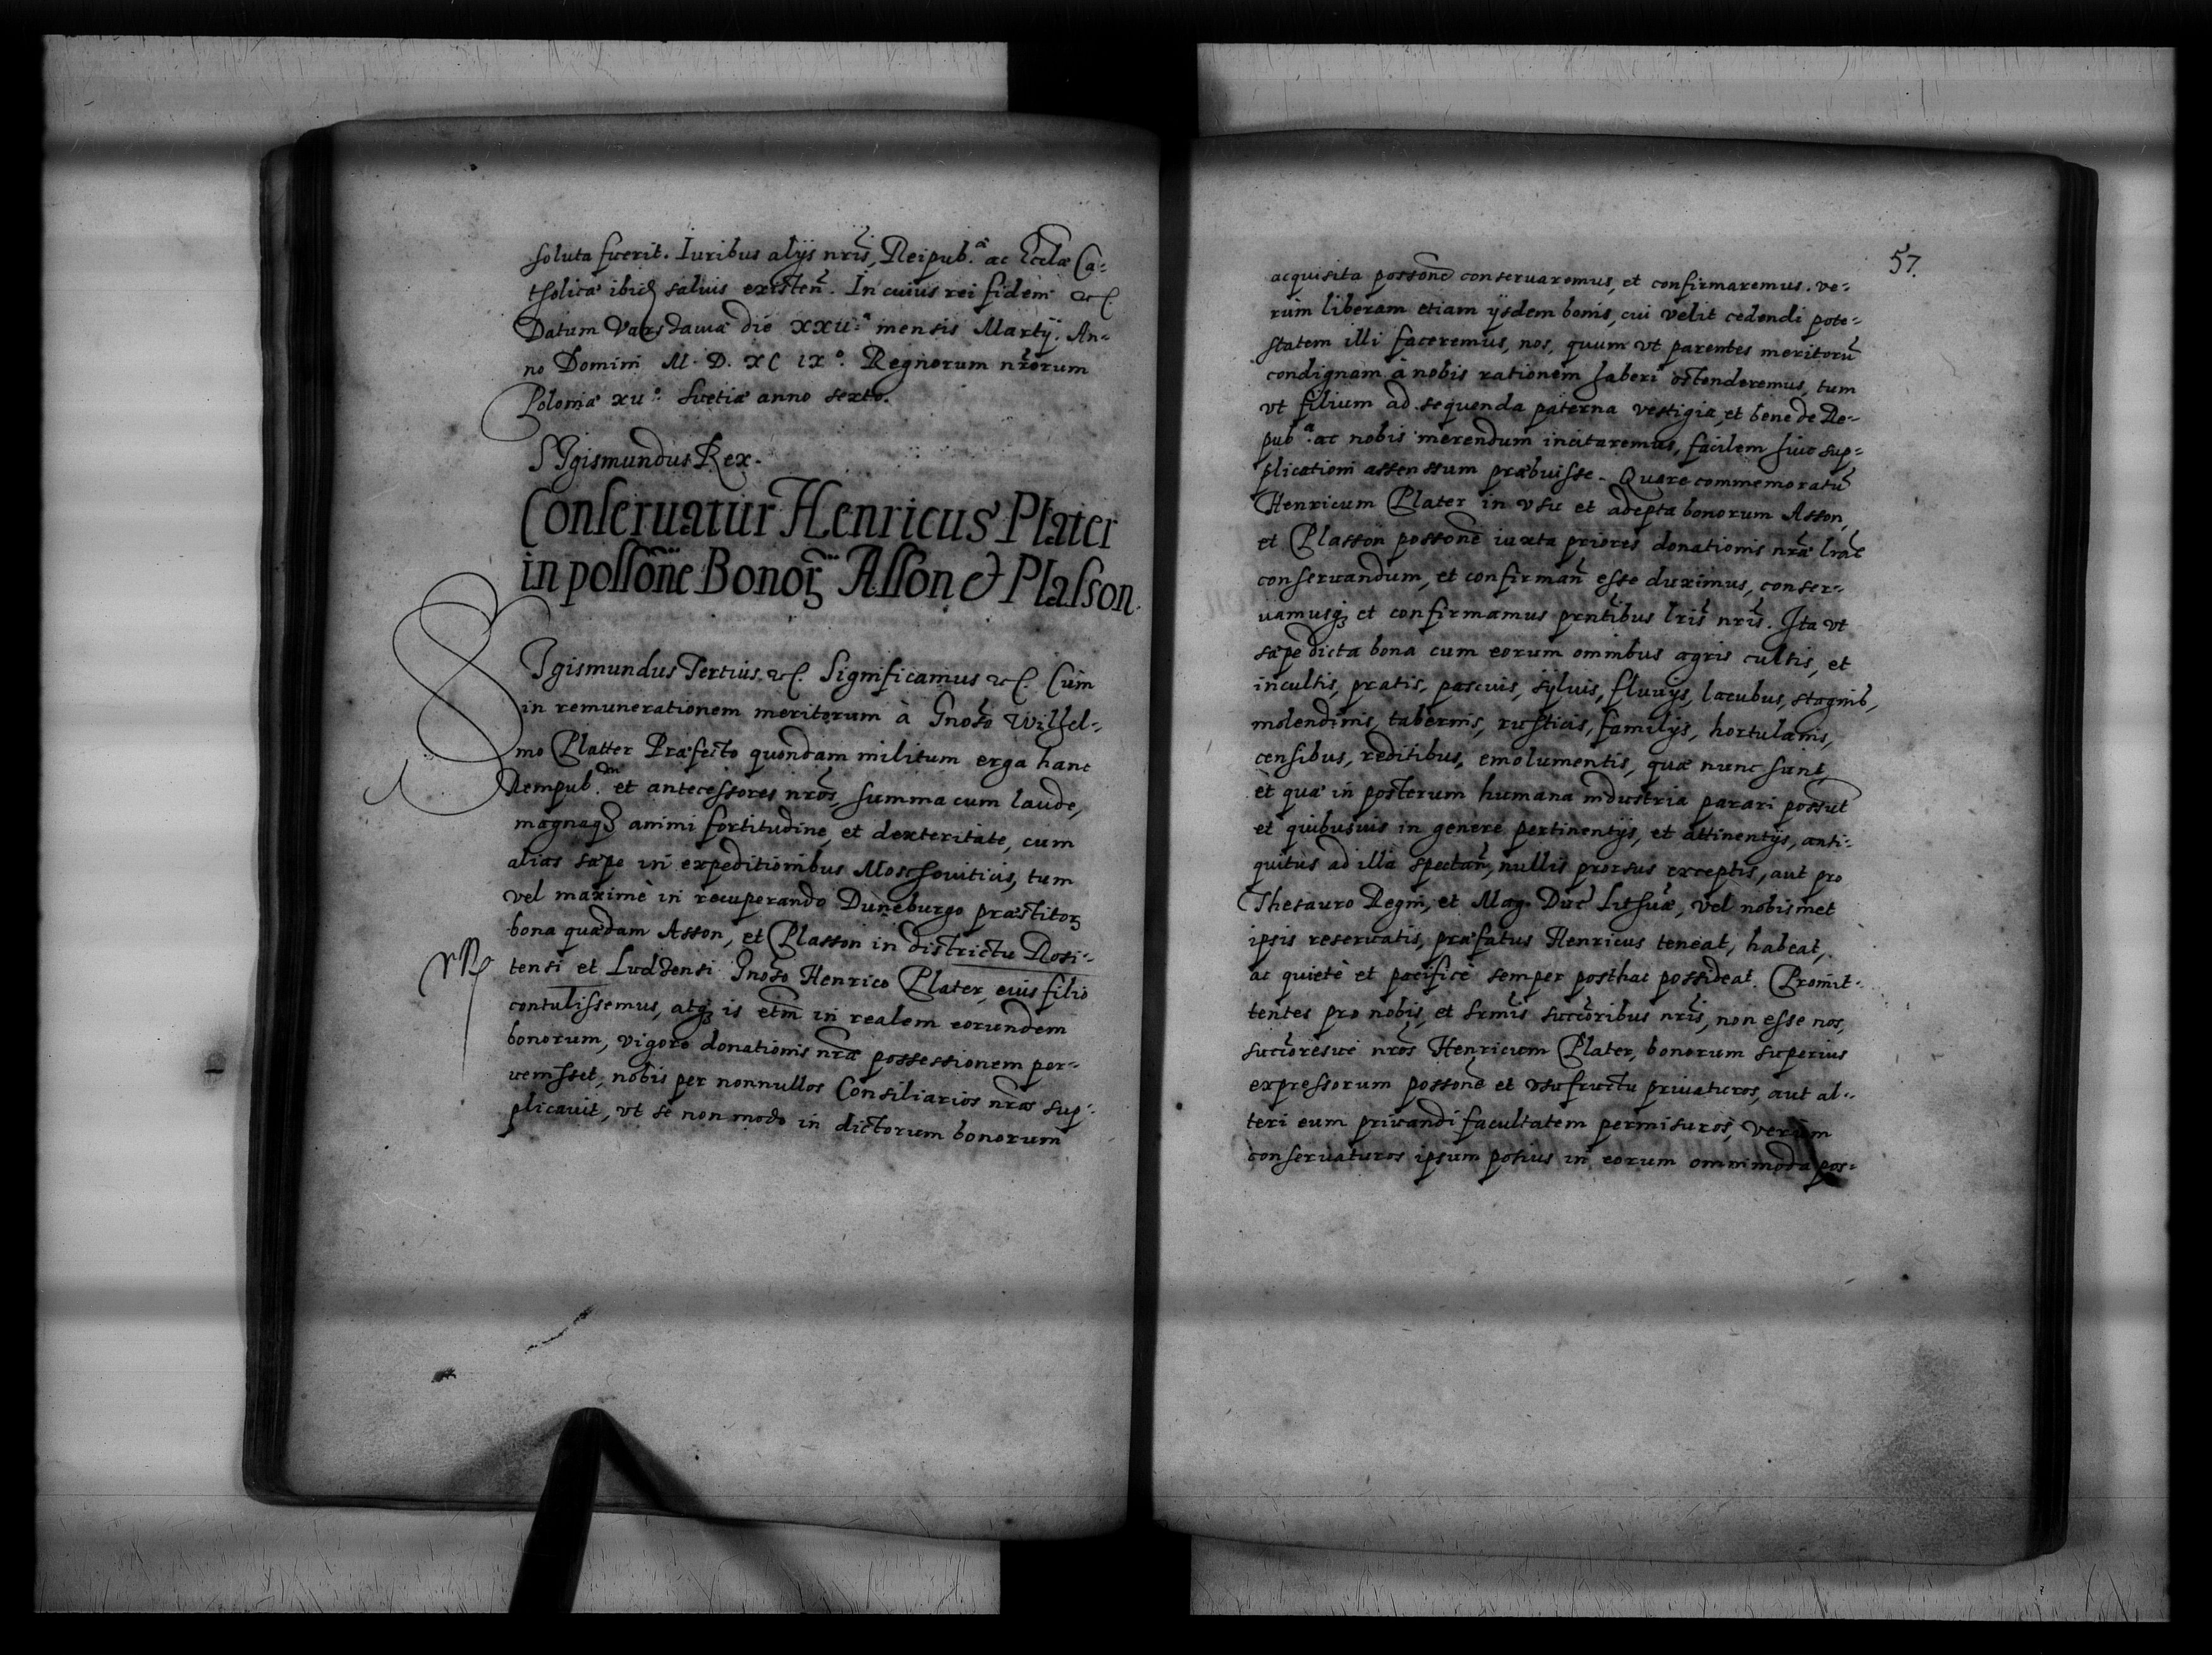 soluta fuerit. Iuribus alijs nris, Reipub.a ac Ecclæ Ca-
tholicæ ibid salvis existen. In cuius rei fidem etc
Datum Varsauiæ die XXII.a mensis Martij. An-
no Domini M. D. XC IX.o Regnorum nrorum
Poloniæ XII.o Suetiæ anno sexto.
SIgismundus Rex.
Conseruatur Henricus Plater
in possone Bonorꝫ Asson et Plasson
SIgismundus Tertius etc. Significamus etc. Cum
in remunerationem meritorum à Gnoso Wilhel-
mo Platter Præfecto quondam militum erga hanc
Rempub.am et antecessores nros, summa cum laude,
magnaqꝫ animi fortitudine, et dexteritate, cum
alias sæpe in expeditionibus Moschouiticis, tum
vel maximè in recuperando Duneburgo præstitorꝫ
bona quædam Asson, et Plasson in districtu Rosi-
tensi et Ludsensi Gnoso Henrico Plater, eius filio
contulissemus, atqꝫ is etm in realem eorundem
bonorum, vigore donationis nræ possessionem per-
uenisset, nobis per nonnullos Consiliarios nros sup-
plicauit, vt se non modo in dictorum bonorum
57.
acquisita possone conseruaremus, et confirmaremus. ve-
rùm liberam etiam ijsdem bonis, cui velit cedendi pote-
statem illi faceremus, nos, quum vt parentes meritoru
condignam à nobis rationem haberi ostenderemus, tum
vt filium ad sequenda paterna vestigia, et bene de Re-
pub.a ac nobis merendum incitaremus, facilem huic sup-
plicationi assensum præbuisse. Quare commemoratu
Henricum Plater in vsu et adepta bonorum Asson,
et Plasson possone iuxta priores donationis nræ lras
conseruandum, et confirman esse duximus, conser-
uamusqꝫ et confirmamus prntibus lris nris. Ita vt
sæpe dicta bona cum eorum omnibus agris cultis, et
incultis, pratis, pascuis, syluis, fluuijs, lacubus, stagnib,
molendinis, tabernis, rusticis, familijs, hortulanis,
censibus, reditibus, emolumentis, quæ nunc sunt,
et quæ in posterum humana industria parari possut
et quibusuis in genere pertinentijs, et attinentijs, anti-
quitùs ad illa spectan, nullis prorsus exceptis, aut pro
Thesauro Regni, et Mag. Duc Lithuæ, vel nobismet
ipsis reseruatis, præfatus Henricus teneat, habeat,
ac quietè et pacificè semper posthac possideat. Promit-
tentes pro nobis, et srmis succoribus nris, non esse nos,
succoresue nros Henricum Plater, bonorum superius
expressorum possone et vsufructu priuaturos, aut al-
teri eum priuandi facultatem permisuros, verùm
conseruaturos ipsum potius in eorum omnimoda pos-